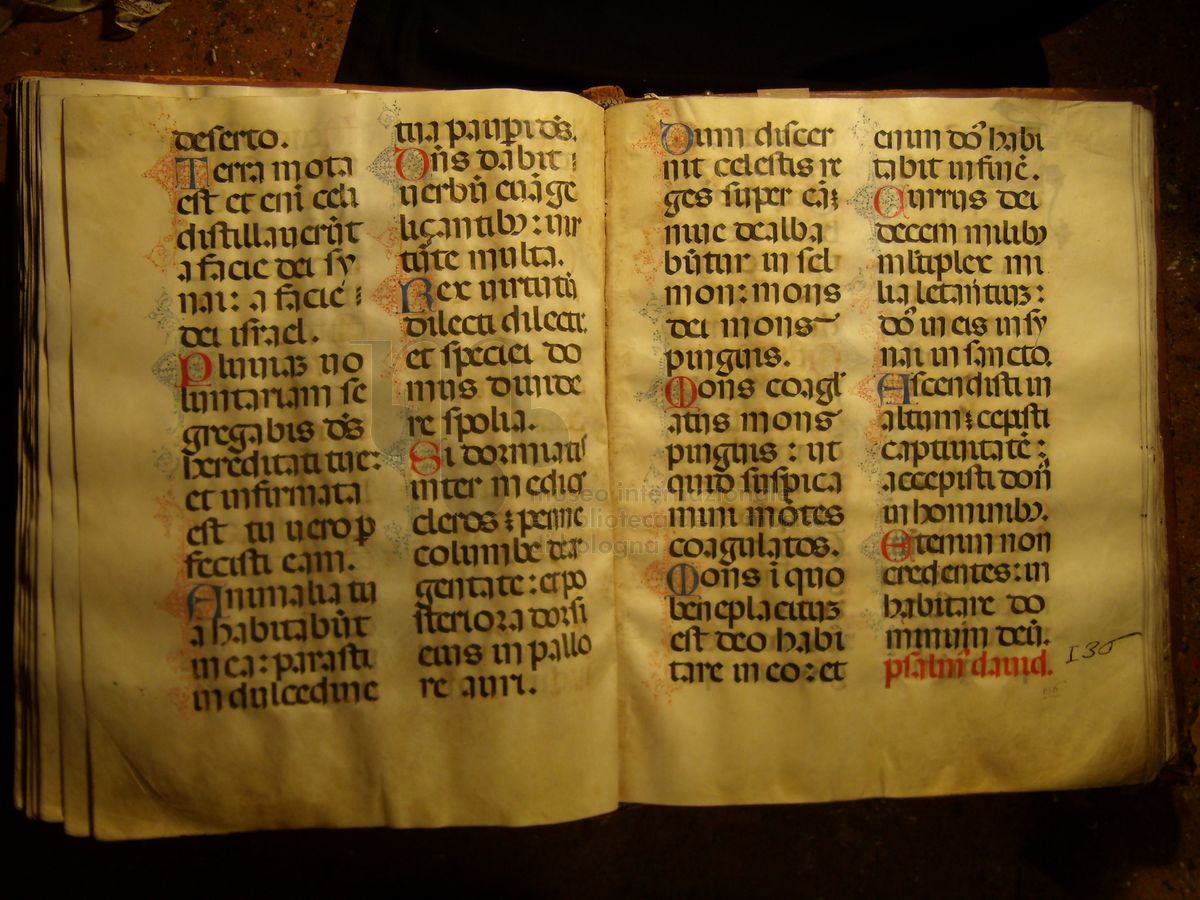 deserto.
Terra mota
est et eni celi
distillauerūt
a facie dei sy
nai: a facie
dei israel.
Pluuiaꝫ uo
luntariam se
gregabis dꝰs
hereditati tue:
et infirmata
est tu uero ꝑ
fecisti eam.
Animalia tu
a habitabūt
in ea: parasti
in dulcedine
tua paupi dꝰs.
Dn̄s dabit
uerbū euāge
liçantibꝰ: uir
tūte multa.
Rex uirtutū
dilecti dilecti:
et speciei do
mus diuide
re spolia.
Si dormiatis
inter medios
cleros: penne
columbe dear
gentate: et po
steriora dorsi
eius in pallo
re auri.
Dum discer
nit celestis re
ges super eā:
niue dealba
būtur in sel
mon: mons
dei mons
pinguis.
Mons coagl'
atus mons
pinguis: ut
quid suspica
mini mōtes
coagulatos.
Mons ī quo
beneplacituꝫ
est deo habi
tare in eo: et
enim do᷒ habi
tabit in finē.
Currus dei
decem milibꝰ
mltiplex mi
lia letantiuꝫ:
do᷒ in eis in sy
nai in sancto.
Ascendisti in
altum: cepisti
captiuitatē:
accepisti don
in hominibꝰ.
Etenim non
credentes: in
habitare do
minum deū.
psalm̄ dauid.
135
museo internazionale
biblioteca
bologna